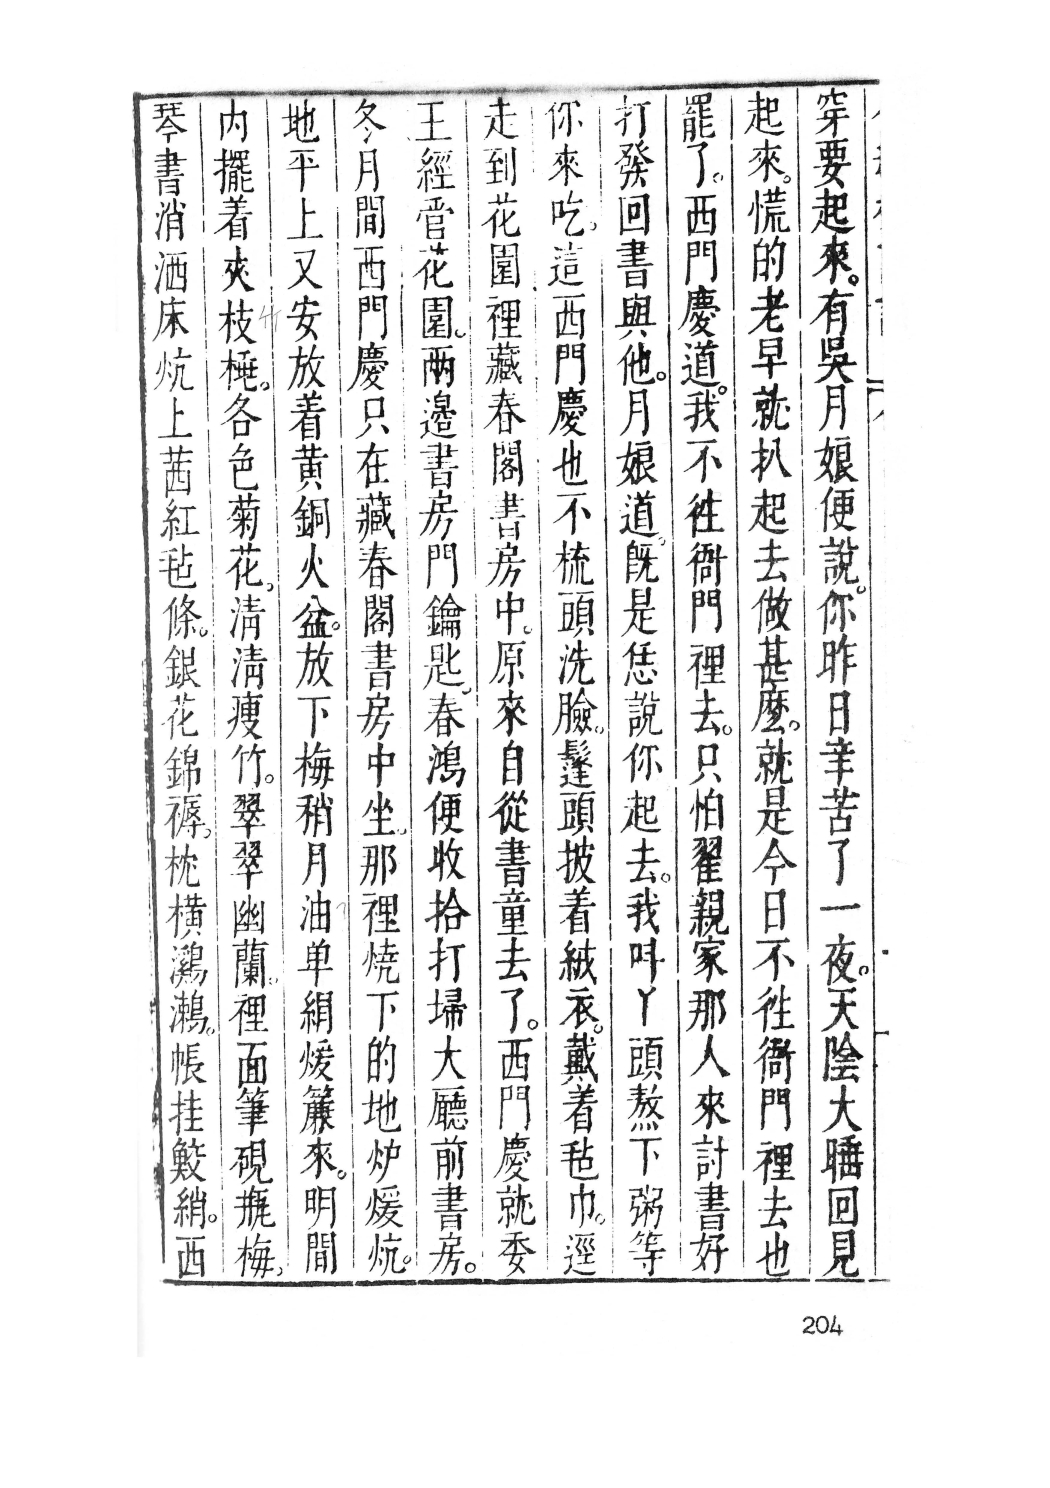 穿要起來。有吳月娘便說。你昨日辛苦了一夜。天陰大睡回見
起來。慌的老早就扒起去做甚麼。就是今日不徃衙門裡去也
罷了。西門慶道。我不徃衙門裡去。只怕翟親家那人來討書好
打發回書與他。月娘道。旣是恁說你起去。我呌丫頭熬下粥等
你來吃。這西門慶也不梳頭洗臉。鬔頭披着絨衣。戴着毡巾。逕
走到花園裡藏春閣書房中。原來自從書童去了。西門慶就委
王經管花園。兩邉書房門鑰匙。春鴻便收拾打掃大廳前書房。
冬月間西門慶只在藏春閣書房中坐。那裡燒下的地炉煖炕。
地平上又安放着黄銅火盆。放下梅稍月油单絹煖簾來。明間
内擺着夾枝桃。各色菊花。清清瘦竹。翠翠幽蘭。裡面筆硯甁梅。
琴書消洒床炕上茜紅毡條。銀花錦褥。枕橫鸂鷘。帳挂鮫綃。西
204